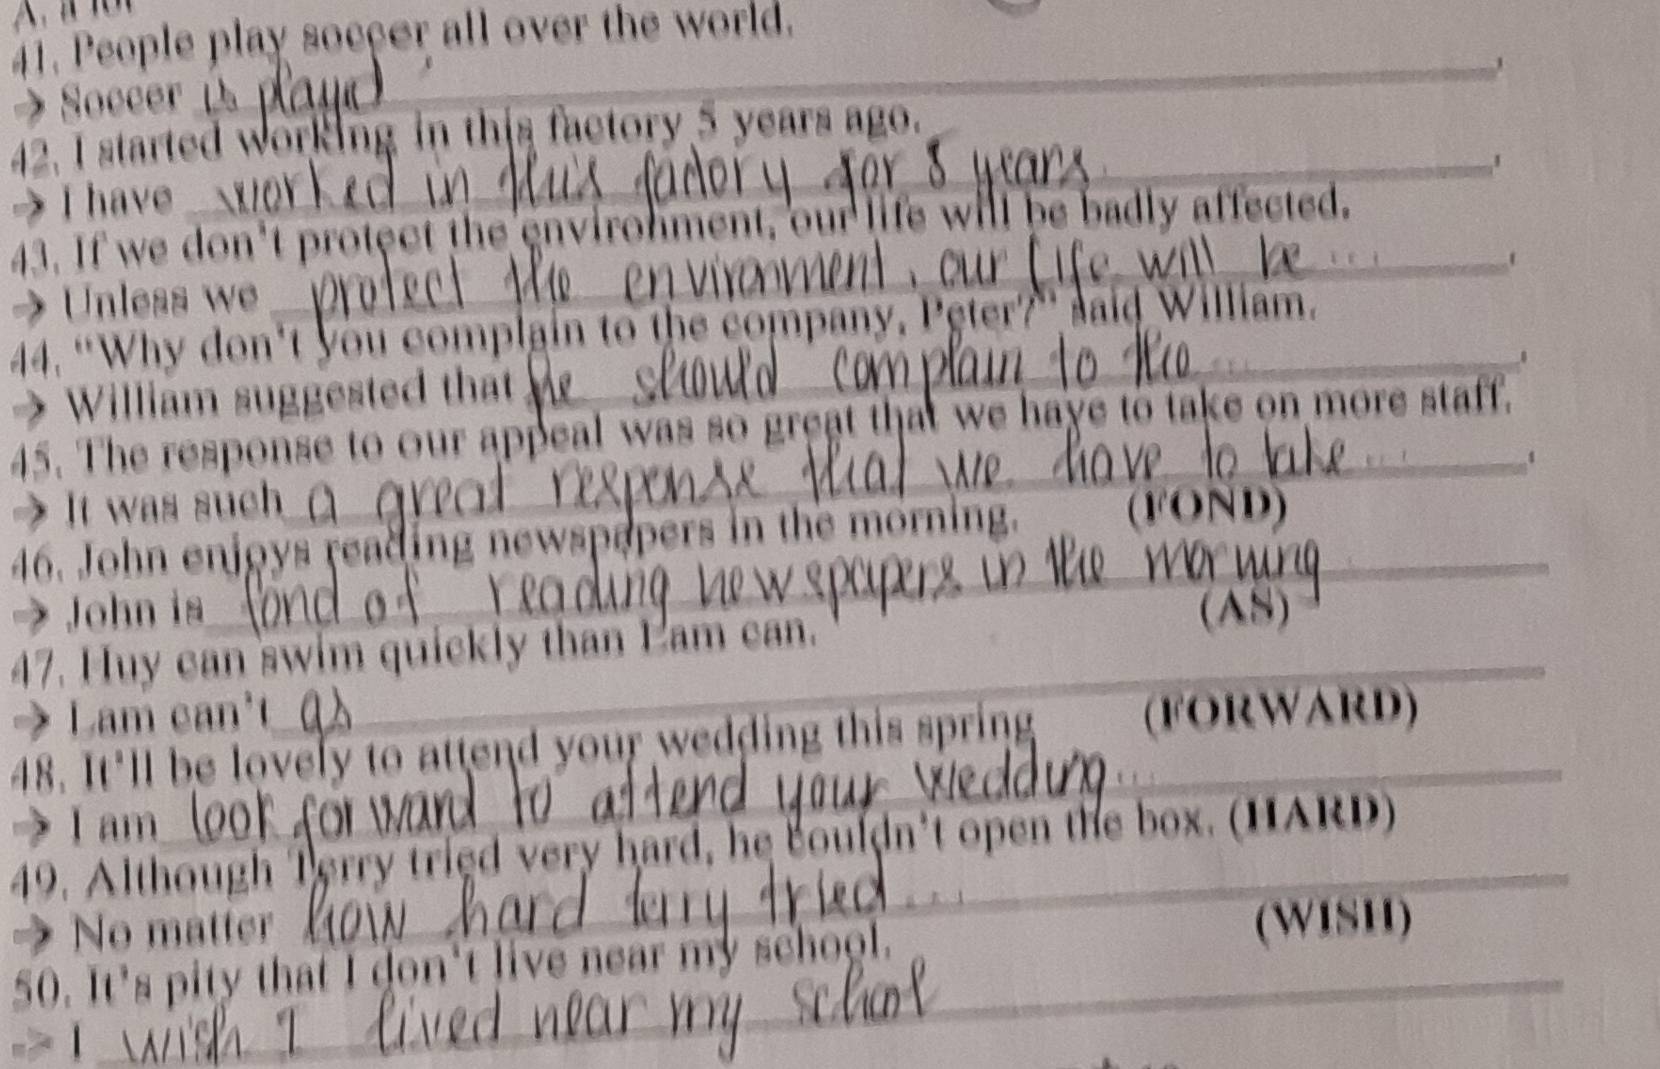 A. a lot
41. People play soccer all over the world.
→ Soccer is played .
42. I started working in this factory 5 years ago.
→ I have worked in this factory for 5 years .
43. If we don't protect the environment, our life will be badly affected.
→ Unless we protect the environment, our life will be ... .
44. "Why don't you complain to the company, Peter?" said William.
→ William suggested that he should complain to the ... .
45. The response to our appeal was so great that we have to take on more staff.
→ It was such a great response that we have to take ... .
46. John enjoys reading newspapers in the morning. (FOND)
→ John is fond of reading newspapers in the morning
47. Huy can swim quickly than Lam can. (AS)
→ Lam can't as
48. It'll be lovely to attend your wedding this spring (FORWARD)
→ I am look forward to attend your wedding ...
49. Although Terry tried very hard, he couldn't open the box. (HARD)
→ No matter how hard terry tried ...
50. It's pity that I don't live near my school. (WISH)
→ I wish I lived near my school